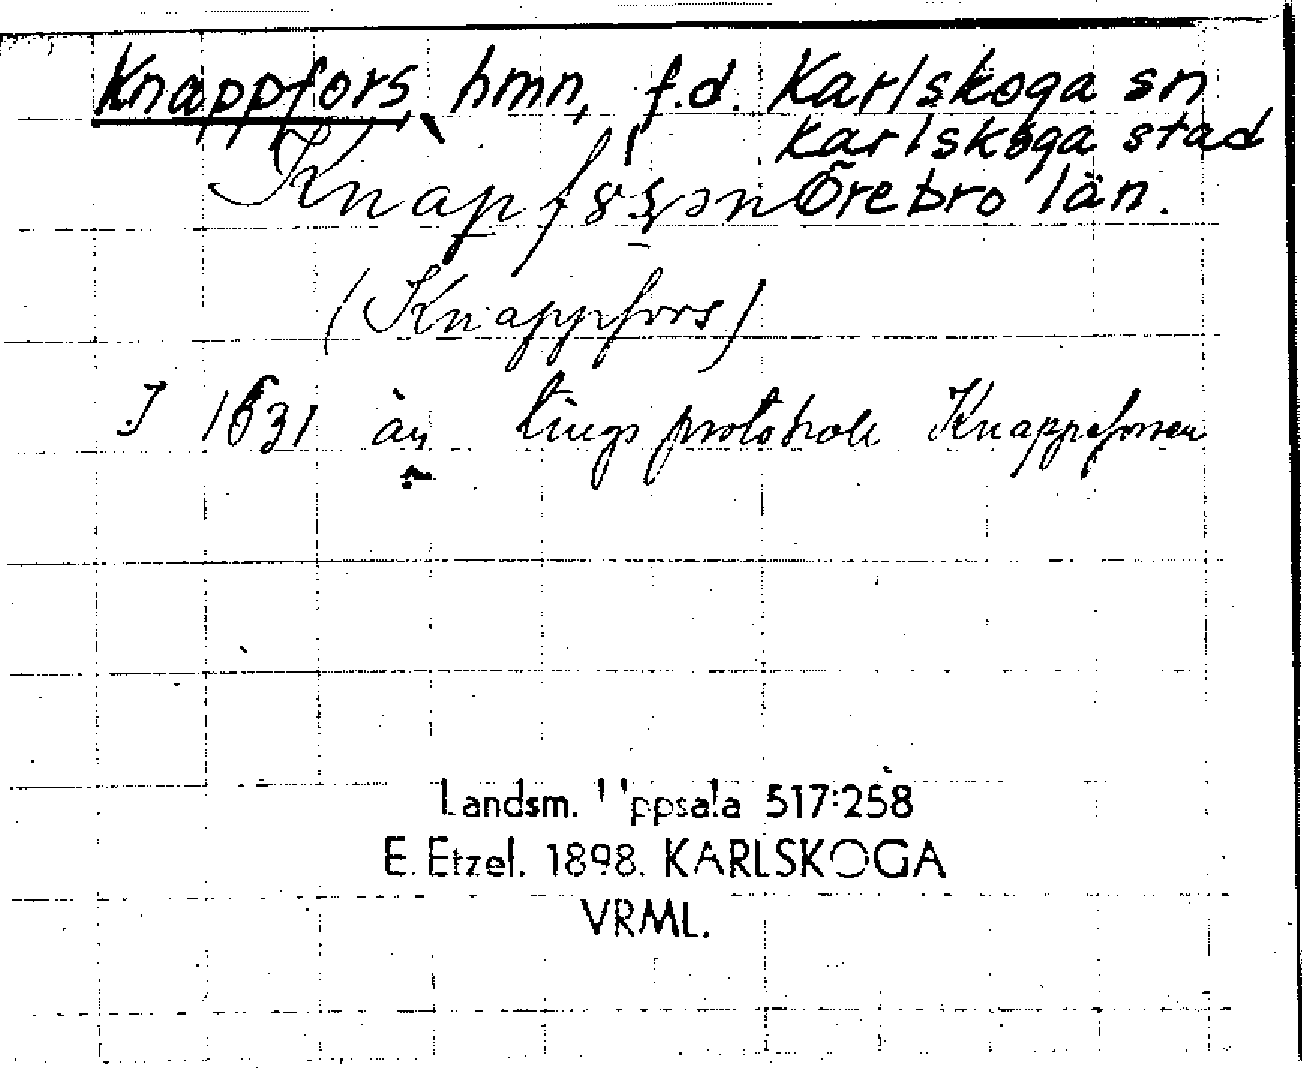 Knappfors, hmn, f.d. Karlskoga sn
Karlskoga stad
Örebro län.
(Knappfors)
I 1631 års tingsprotokoll Knappeforssen
Landsm. Uppsala 517:258
E. Etzel. 1898. KARLSKOGA
VRML.